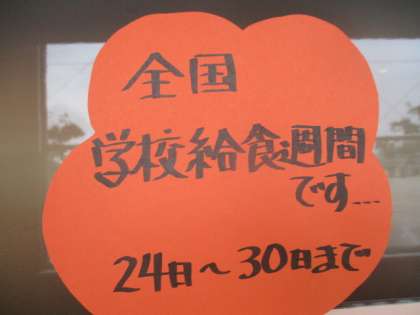 全国
学校給食週間
です...
24日～30日まで